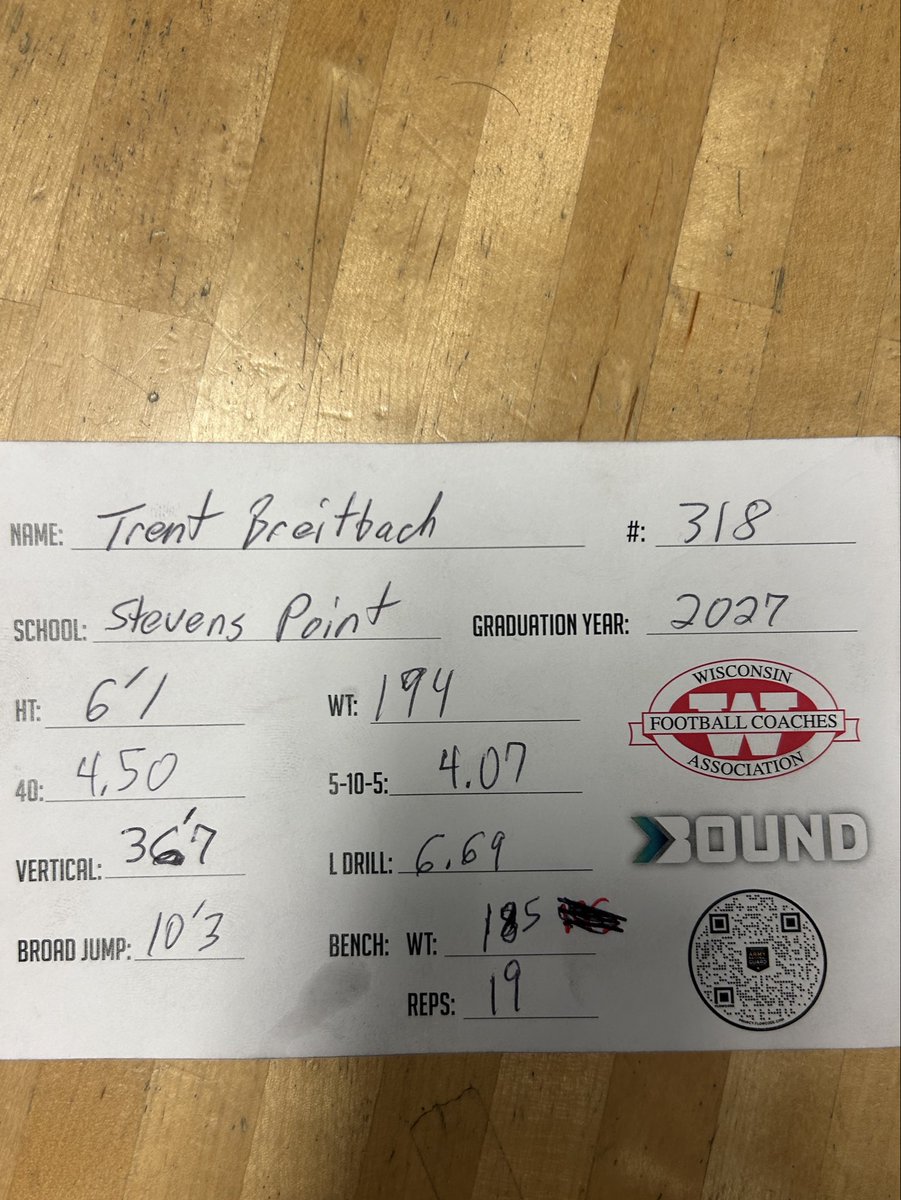 NAME: Trent Breitbach #: 318
SCHOOL: Stevens Point GRADUATION YEAR: 2027
HT: 6'1 WT: 194
WISCONSIN
FOOTBALL COACHES
ASSOCIATION
40: 4.50 5-10-5: 4.07
VERTICAL: 36'7 L DRILL: 6.69
BOUND
BROAD JUMP: 10'3 BENCH: WT: 185
REPS: 19
ARMY
GUARD